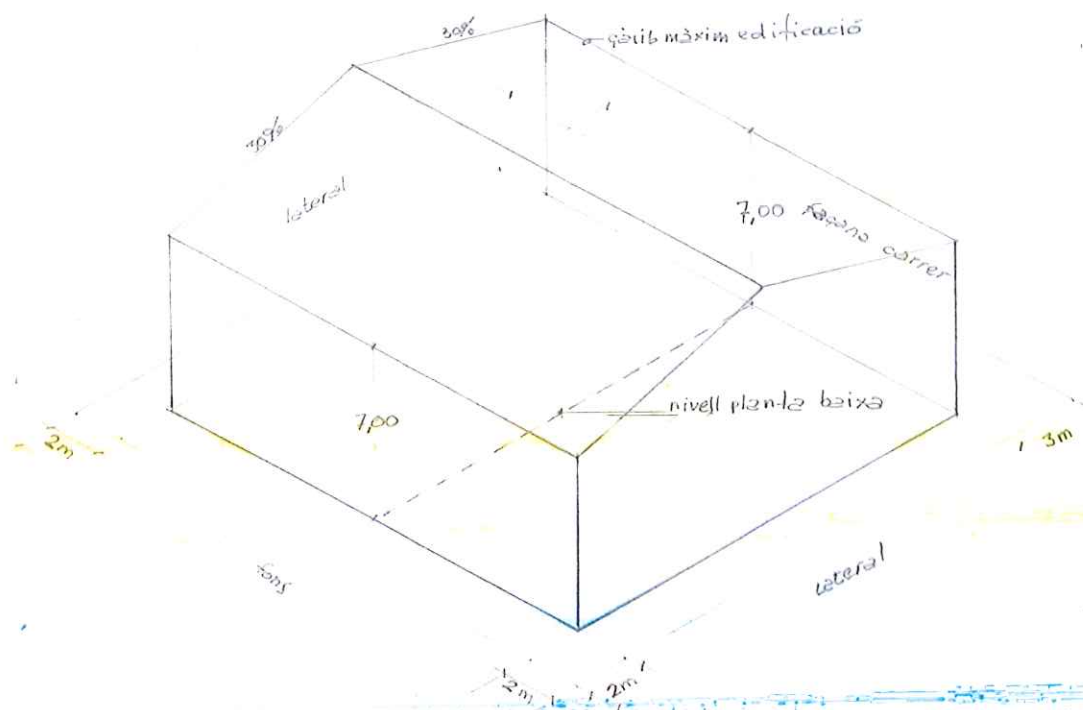 30%
gàrib màxim edificació
30%
lateral
7,00 façana carrer
nivell planta baixa
7,00
2m
3m
fons
lateral
2m
2m